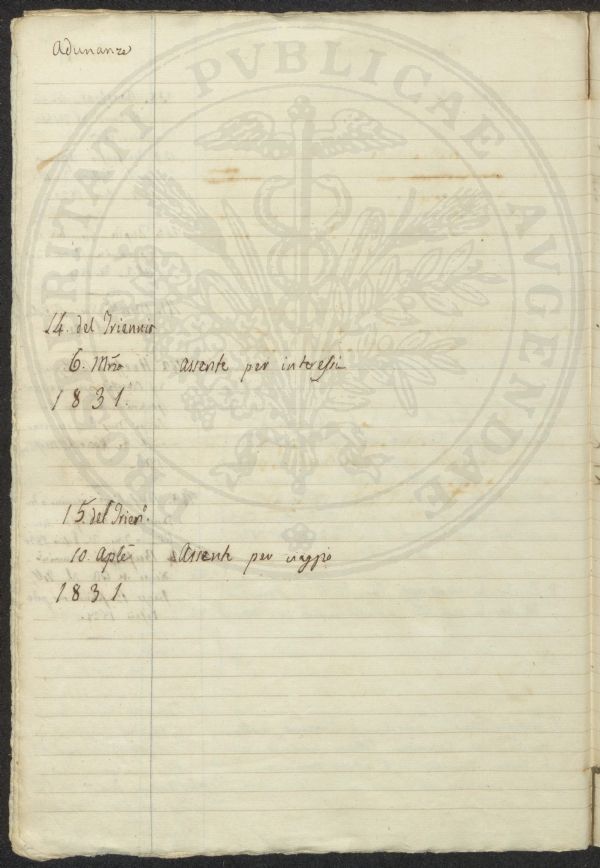 Adunanze
PROSPERITATI PUBLICAE AUGENDAE
14. del Triennio
6. Mrzo assente per interessi
1831.
15. del Trien°.
10. Aple assente per viaggio
1831.